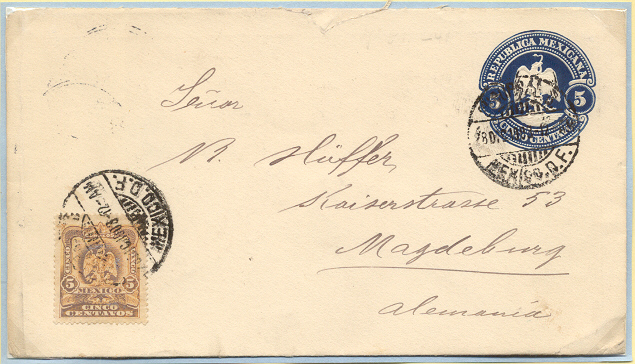 REPUBLICA MEXICANA
5 5
CINCO CENTAVOS
MEXICO, D.F.
Señor
R. Höffer
Kaiserstrasse 53
Magdeburg
Alemania
MEXICO, D.F.
5 5
MEXICO
CINCO
CENTAVOS